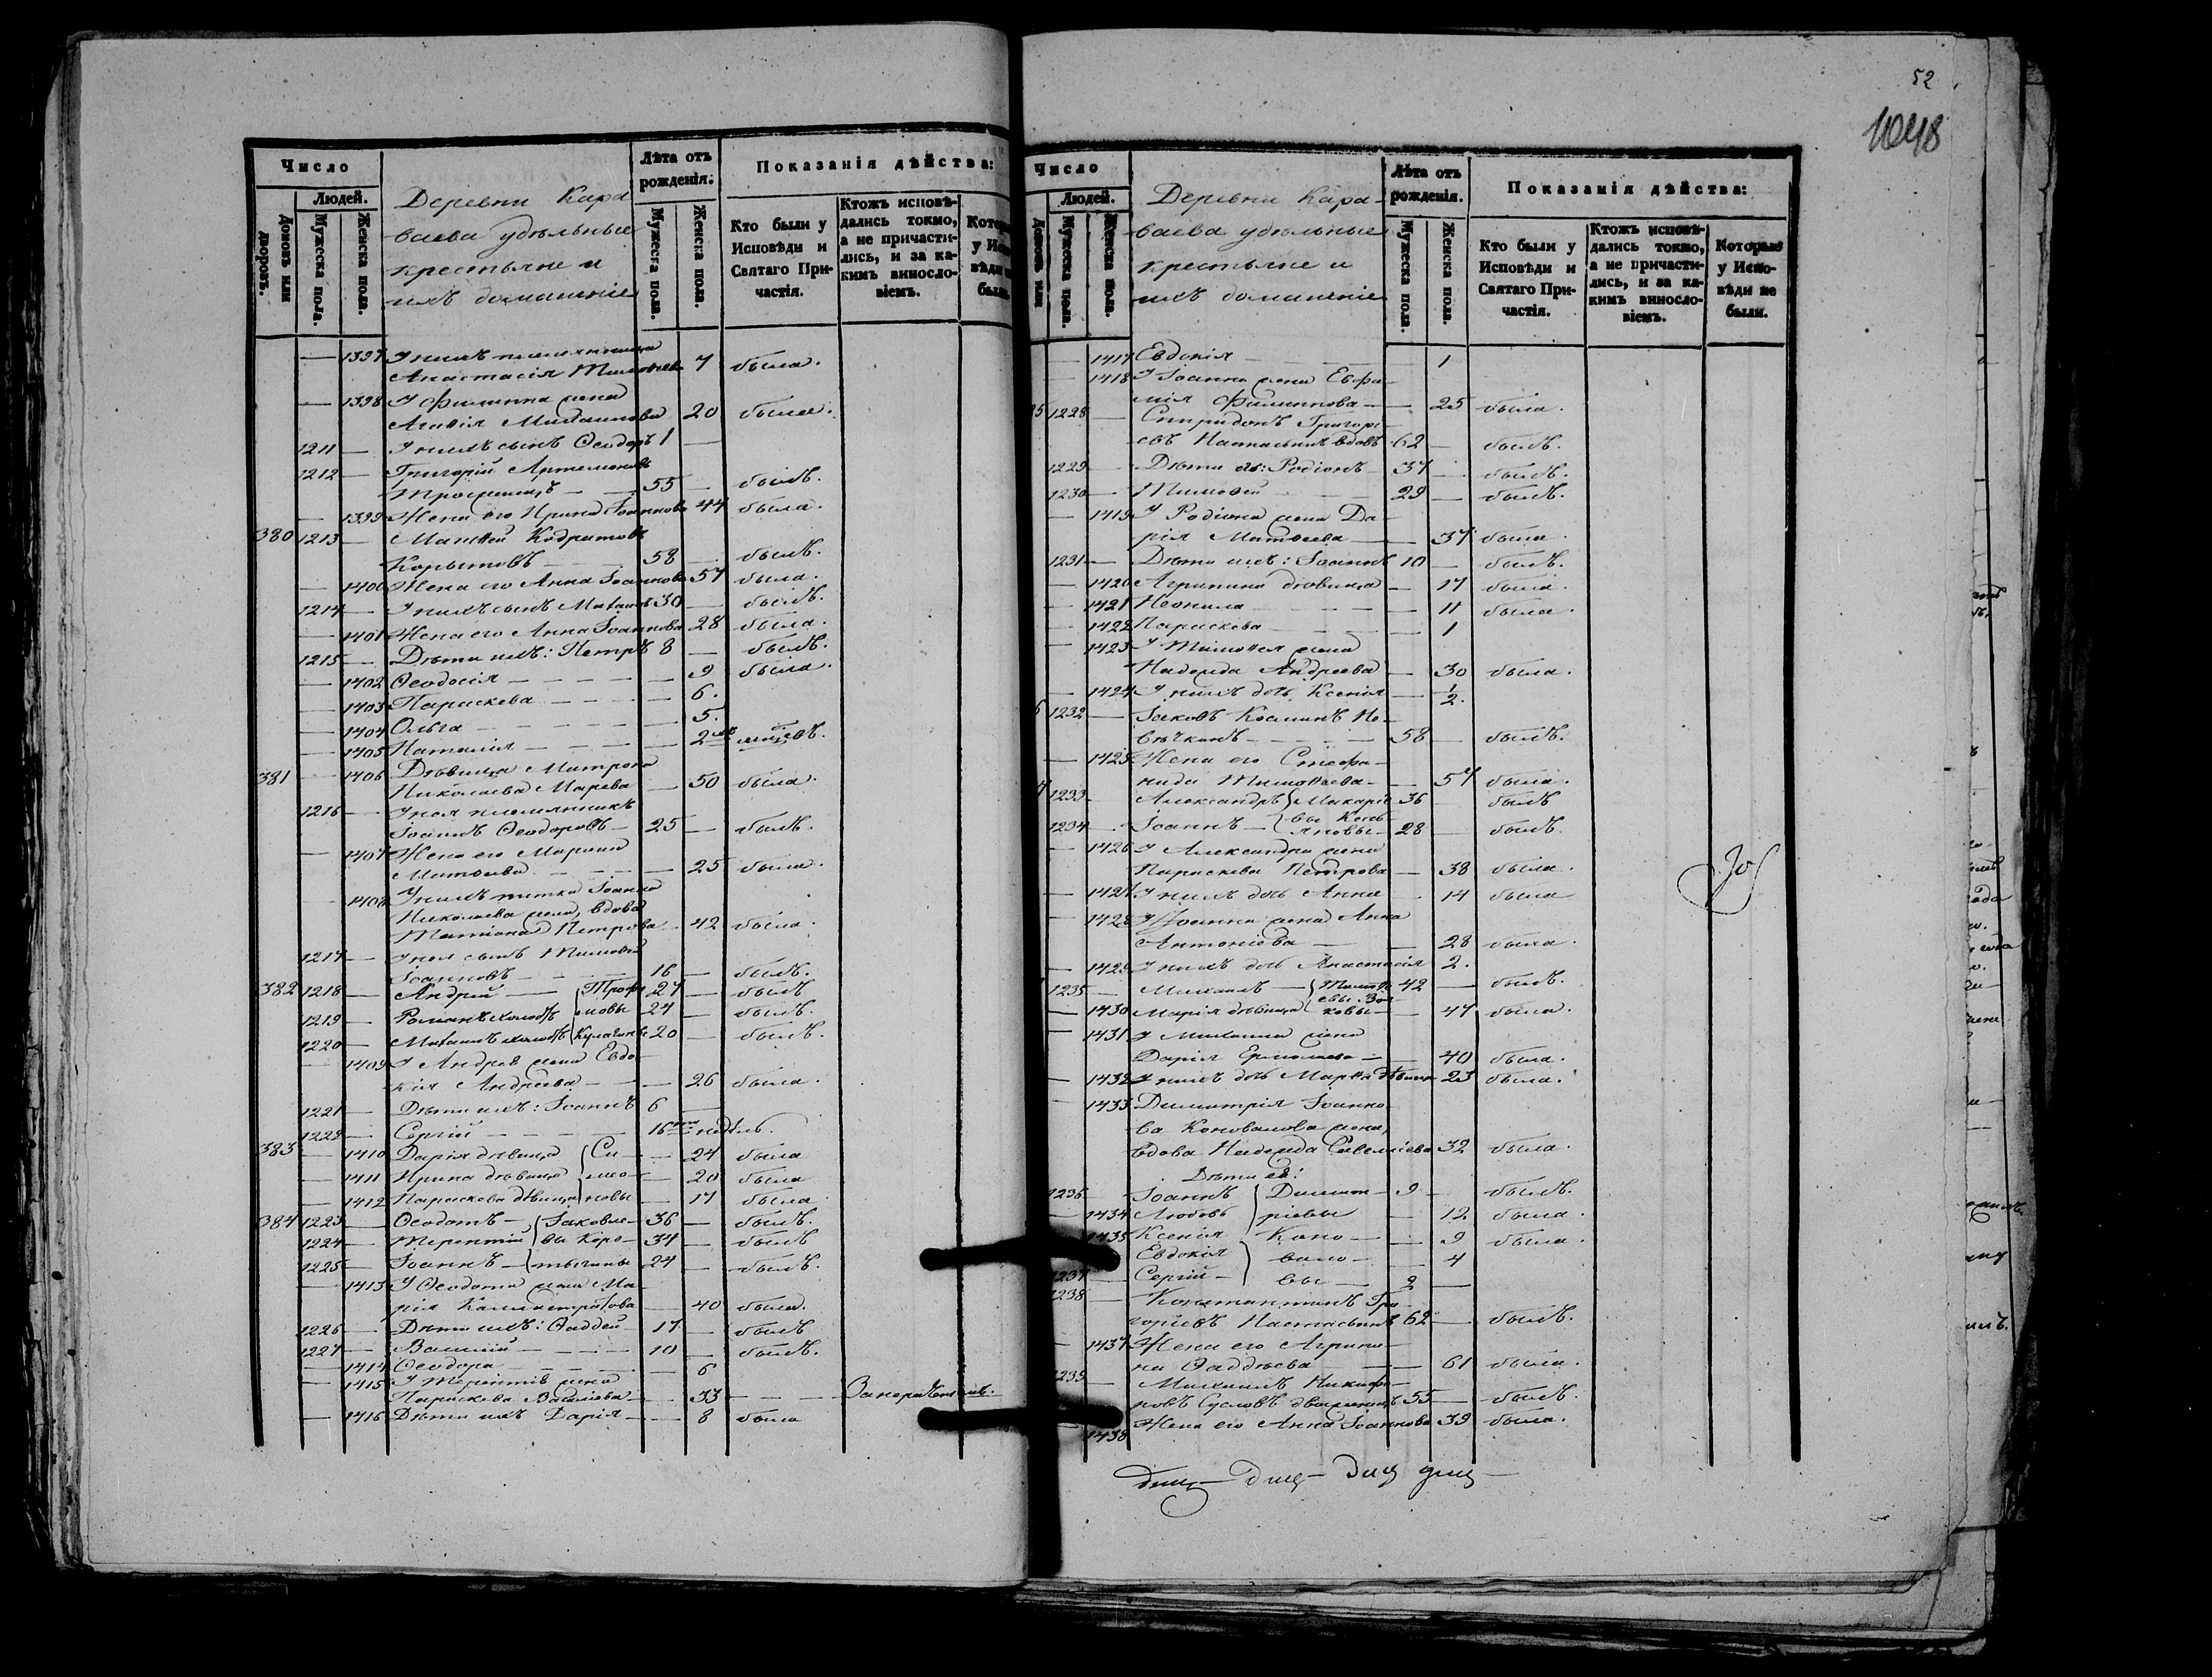 Число
Людей.
Домовъ или дворовъ.
Мужеска пола.
Женска пола.
Деревни Кара
ваева удѣльные
крестьяне и
ихъ домашніе
Лѣта отъ рожденія.
Мужеска пола.
Женска пола.
Показанія дѣйства:
Кто были у Исповѣди и Святаго Причастія.
Ктожъ исповѣдались токмо, а не причастились, и за какимъ винословіемъ.
— 1397 У нихъ племянница
Анастасія 7 была.
— 1398 У Филиппа жена
Агафія 20 была.
1211 — У нихъ сынъ Ѳеодоръ 1 —
1212 — Григорій Артемоновъ
55 — былъ.
— 1399 Жена его Ирина Іоаннова 44 была.
380 1213 — Матѳей Кодратовъ
Корытовъ — 58 — былъ.
— 1400 Жена его Анна Іоаннова 57 была.
1214 — У нихъ сынъ Михаилъ 30 — былъ.
— 1401 Жена его Анна Іоаннова 28 была.
1215 — Дѣти ихъ: Петръ 8 — былъ.
— 1402 Ѳеодосія — 9 была.
— 1403 Параскева — 6.
— 1404 Ольга — 5.
— 1405 Наталія — 2
381 — 1406 Дѣвица Матрона
Николаева Марева — 50 была.
1216 — У нея племянникъ
Іоаннъ Ѳеодоровъ — 25 — былъ.
— 1407 Жена его Марѳа
Матѳеева — 25 была.
— 1408 У нихъ тетка Іоанна
Николаева жена, вдова
Татіана Петрова — 42 была.
1217 — У нея сынъ Тимоѳей
Іоанновъ — 16 — былъ.
382 1218 — Андрей — Трофи 27 — былъ
1219 — Романъ холостъ мовы 24 — былъ.
1220 — Михаилъ холостъ Кулагины 20 — былъ.
— 1409 У Андрея жена Евдо
кія Андреева — 26 была.
1221 — Дѣти ихъ: Іоаннъ 6 —
1222 — Сергій — 16 недѣль.
383 — 1410 Дарія дѣвица Си — 24 была
— 1411 Ирина дѣвица мео — 20 была
— 1412 Параскева дѣвица новы — 17 была
384 1223 — Ѳеодотъ — Іаковле — 36 — былъ.
1224 — Терентій вы Коро — 34 — былъ
1225 — Іоаннъ — тыгины 24 — былъ.
— 1413 У Ѳеодота жена Ма
рія Каллистратова — 40 была.
1226 — Дѣти ихъ: Ѳаддей — 17 — былъ
1227 — Василій — 10 — былъ.
— 1414 Ѳеодора — 6
— 1415 У Терентія жена
Параскева Василіева — 33 —
— 1416 Дѣти ихъ Дарія — 8 была
52
1048
Число
Людей.
Домовъ или
Мужеска пола.
Женска пола.
Деревни Кара-
ваева удѣльные
крестьяне и
ихъ домашніе
Лѣта отъ рожденія.
Мужеска пола.
Женска пола.
Показанія дѣйства:
Кто были у Исповѣди и Святаго Причастія.
Ктожъ исповѣдались токмо, а не причастились, и за какимъ винословіемъ.
Которые у Исповѣди не были.
— 1417 Евдокія — 1
— 1418 У Іоанна жена Евфи
мія Филиппова — 25 была.
1228 — Спиридонъ Григорі
евъ вдовъ 62 — былъ.
1229 — Дѣти его: Родіонъ 37 — былъ.
1230 — Тимоѳей 29 — былъ.
— 1419 У Родіона жена Да
рія Матѳеева — 37 была.
1231 — Дѣти ихъ: Іоаннъ 10 — былъ.
— 1420 Агрипина дѣвица — 17 была.
— 1421 Неонила — 11 была.
— 1422 Параскева — 1
— 1423 У Тимоѳея жена
Надежда Андреева — 30 была.
— 1424 У нихъ дочь Ксенія — 1/2.
1232 — Іаковъ Козминъ
58 — былъ.
— 1425 Жена его Стефа
нида Тимоѳеева — 57 была.
1233 — Александръ Макаріе 36 былъ
1234 — Іоаннъ — вы 28 — былъ.
— 1426 У Александра жена
Параскева Петрова — 38 была.
— 1427 У нихъ дочь Анна — 14 была
— 1428 У Іоанна жена Анна
Антоніева — 28 была.
— 1429 У нихъ дочь Анастасія 2.
1235 — Михаилъ — 42 — былъ.
— 1430 Марія дѣвица — 47 была.
— 1431 У Михаила жена
Дарія Ермолаева — 40 была.
— 1432 У нихъ дочь Марѳа дѣвица 23 была.
— 1433 Димитрія Іоанно
ва Коновалова жена,
вдова Надежда Савеліева 32 была.
Дѣти ея:
1236 Іоаннъ Димит — 9 — былъ.
— 1434 Любовь ріевы — 12 была.
— 1435 Ксенія Коно — 9 была.
Евдокія вало — 4
1237 — Сергій — вы — 2 —
1238 — Константинъ Гри
горіевъ 62 — былъ.
— 1437 Жена его Агрипи
на Ѳаддеева — 61 была.
1239 — Михаилъ Никифо
ровъ Сусловъ 55 — былъ.
— 1438 Жена его Анна Іоаннова 39 была.